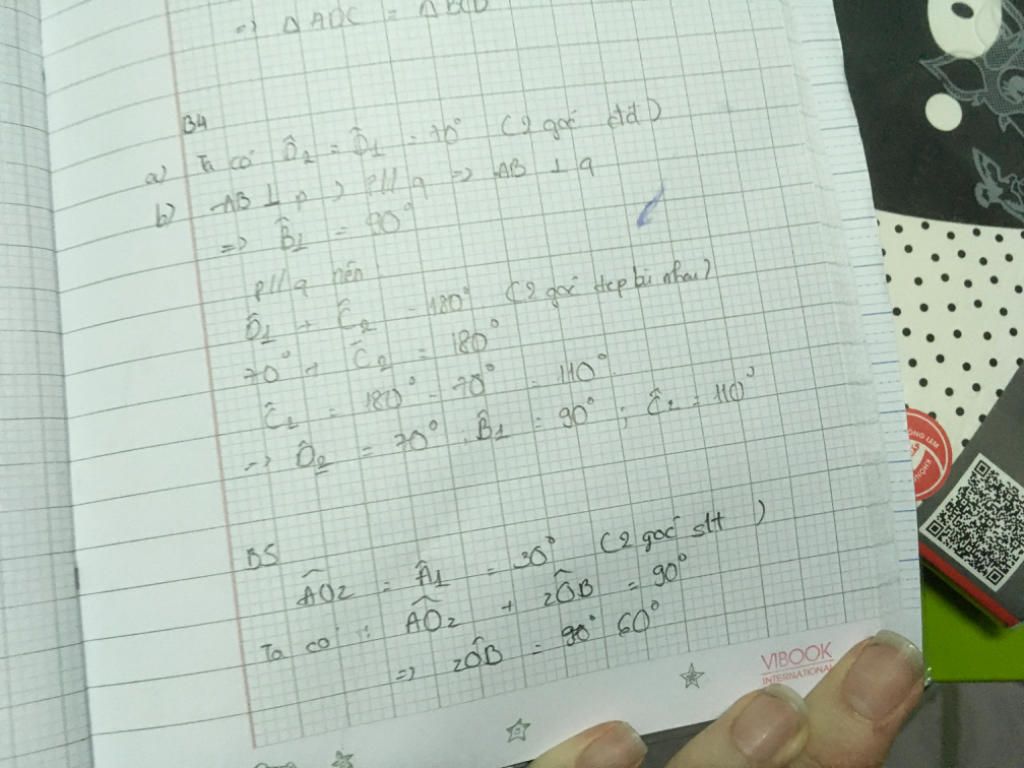 => Δ ADC = Δ BCD
B4
a) Ta có D̂2 = D̂1 = 70° (2 góc đđ)
b) AB ⊥ p, p // q => AB ⊥ q
=> B̂1 = 90°
p // q nên
D̂1 + Ĉ2 = 180° (2 góc tcp bù nhau)
70° + Ĉ2 = 180°
Ĉ2 = 180° - 70° = 110°
=> D̂2 = 70°, B̂1 = 90°; Ĉ2 = 110°
B5
AÔz = Â1 = 30° (2 góc slt)
Ta có: AÔz + zÔB = 90°
=> zÔB = 60°
VIBOOK
INTERNATIONAL